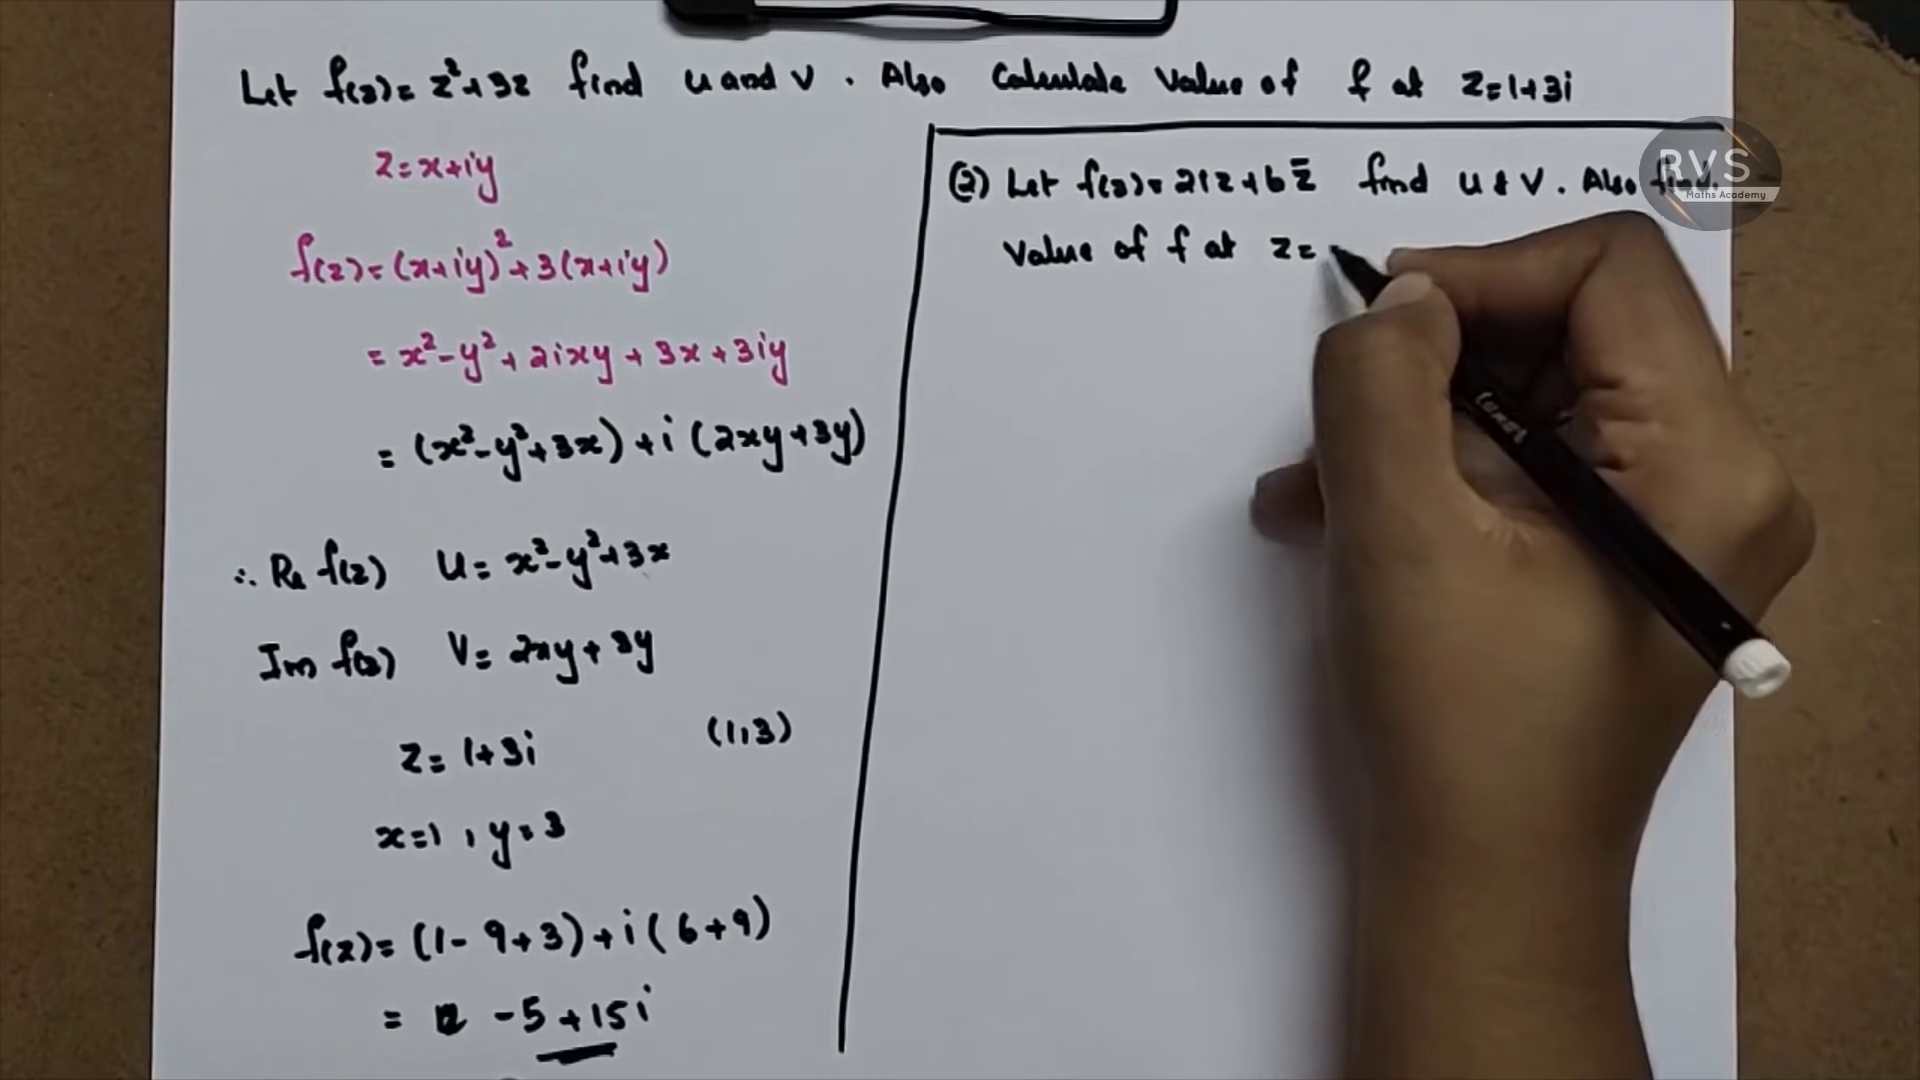 Let f(z)= z²+3z find u and v. Also Calculate Value of f at z=1+3i
z=x+iy
f(z)=(x+iy)²+3(x+iy)
= x²-y²+2ixy+3x+3iy
= (x²-y²+3x)+i(2xy+3y)
∴ Re f(z) u= x²-y²+3x
Im f(z) V= 2xy+3y
z= 1+3i (1,3)
x=1, y=3
f(z)= (1-9+3)+i(6+9)
= -5+15i
(2) Let f(z)= 2iz+6z̄ find u & v. Also find
Value of f at z=
RVS
Maths Academy